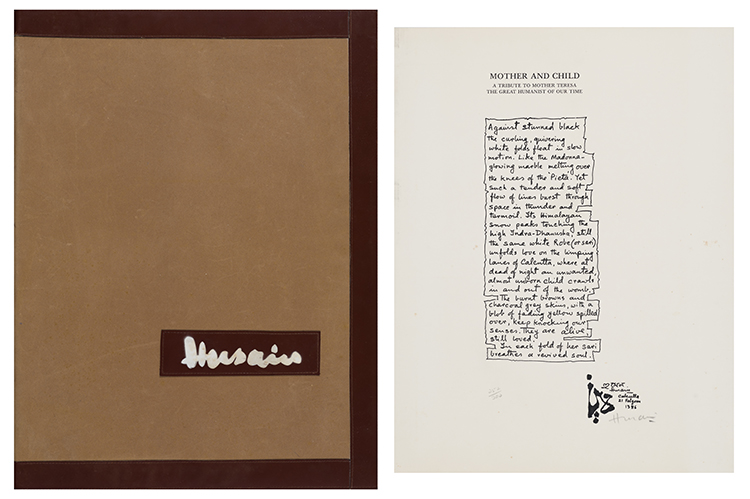 Husain
MOTHER AND CHILD
A TRIBUTE TO MOTHER TERESA
THE GREAT HUMANIST OF OUR TIME
Against stunned black
the curling, quivering
white folds float in slow
motion. Like the Madonna-
glowing marble melting over
the knees of the 'Pieta'. Yet
such a tender and soft
flow of lines burst through
space in thunder and
turmoil. Its Himalayan
snow peaks touching the
high Indra-Dhanusha, still
the same white Robe (or sari)
unfolds love on the limping
lanes of Calcutta, where at
dead of night an unwanted,
almost unborn child crawls
in and out of the womb.
The burnt browns and
charcoal grey skins, with a
blob of fading yellow spilled
over, keep knocking our
senses. They are alive
still loved.
In each fold of her sari
breathes a revived soul.
Husain
Calcutta
Husain